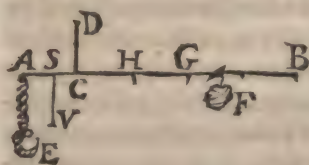 D
A S H G B
C
F
V
E